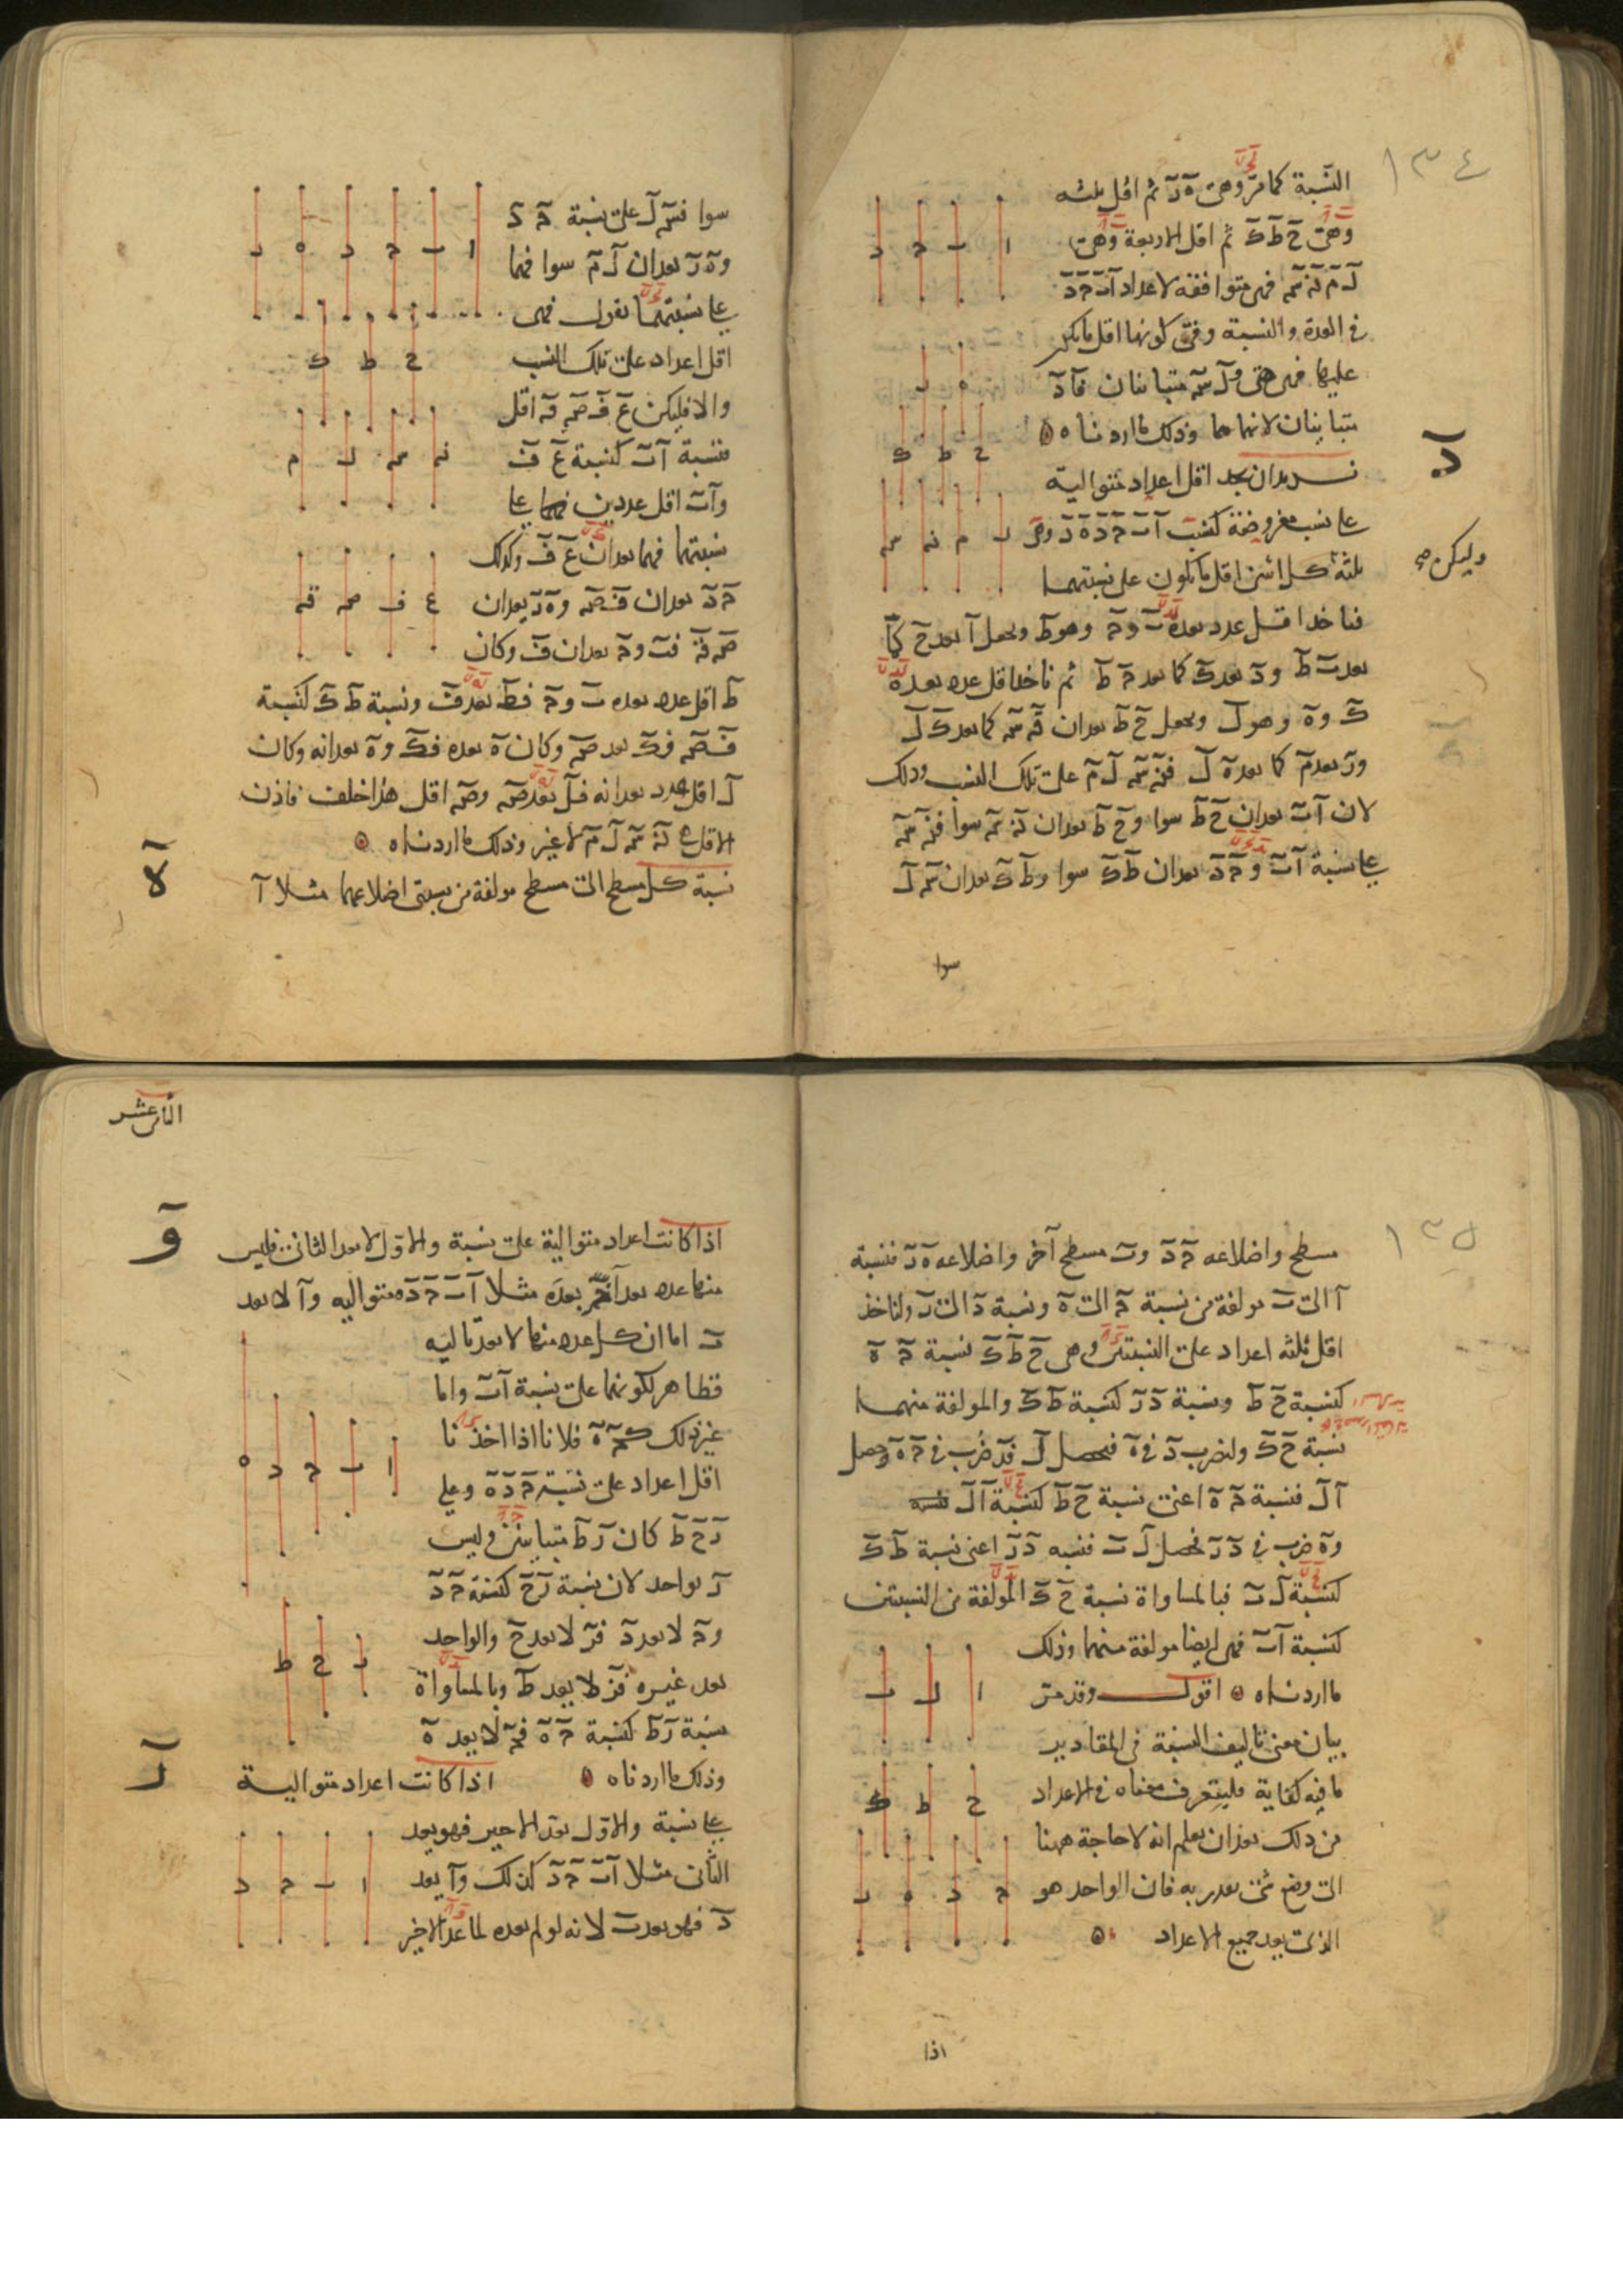 ١٣٤
النسبة كما مر وهى ه ر ثم اقل ثلثه
وهى ح ط ك ثم اقل الاربعة وهى
ل م ن س فهى متوافقه لاعداد ا ب ج د
فى العدة والنسبة وفى كونها اقل ما يكن
عليها فهى هى و ل س متباينان فا د
متباينان لانهما هما وذلك ما اردناه
د
نريد ان نجد اقل اعداد متوالية
على نسب مفروضة كنسب ا ب ج د ه ر وهى
وليكن صح
ثلثة كل اثنين اقل ما يكون على نسبتهما
فناخذ اقل عدد يعده ب و ج وهو ط ونجعل ا يعد ح كما
يعد ب ط و د يعد ك كما يعد ج ط ثم ناخذ اقل عدد يعده
ك و ه وهو ل ونجعل ح ط يعدان ن س كما يعد ك ل
و ر يعد م كما يعد ه ل فن س ل م على تلك النسب وذلك
لان ا ب يعدان ح ط سوا و ح ط يعدان ن س سوا فن س
على نسبة ا ب و ج د يعدان ط ك سوا و ط ك يعدان س ل
سوا
سوا فس ل على نسبة ج د
و ه ر يعدان ل م سوا فهما
على نسبتهما نقول فهى
اقل اعداد على تلك النسب
والا فليكن ع ف ص ق اقل
فنسبة ا ب كنسبة ع ف
و ا ب اقل عددين على
نسبتهما فهما يعدان ع ف وكذلك
ج د يعدان ف ص و ه ر يعدان
ص ق فب و ج يعدان ف وكان
ط اقل عدد يعده ب و ج فط يعد ف ونسبة ط ك كنسبة
ف ص فك يعد ص وكان ه يعده فك و ه يعدانه وكان
ل اقل عدد يعدانه فل يعد ص وص اقل هذا خلف فاذن
الاقل ن س ل م لا غير وذلك ما اردناه
ه
نسبة كل مسطح الى مسطح مولفة من نسبتى اضلاعهما مثلا ا
١٣٥
مسطح واضلاعه ج د و ب مسطح آخر واضلاعه ه ر فنسبة
ا الى ب مولفة من نسبة ج الى ه ونسبة د الى ر ولناخذ
اقل ثلثه اعداد على النسبتين وهى ح ط ك نسبة ج ه
كنسبة ح ط ونسبة د ر كنسبة ط ك والمولفة منهما
نسبة ح ك ولنضرب د فى ه فيحصل ل فد ضرب فى ج ه وحصل
ا ل فنسبة ج ه اعنى نسبة ح ط كنسبة ا ل
و ه ضرب فى د ر فحصل ل ب فنسبه د ر اعنى نسبة ط ك
كنسبة ل ب فبالمساواة نسبة ح ك المولفة من النسبتين
كنسبة ا ب فهى ايضا مولفة منهما وذلك
ما اردناه اقول وقد مر
بيان معنى تاليف النسبة فى المقادير
ما فيه كفاية فليتعرف معناه فى الاعداد
من ذلك بعد ان يعلم انه لا حاجة ههنا
الى وضع شى يقدر به فان الواحد هو
الذى يعد جميع الاعداد
اذا
الثامن عشر
و
اذا كانت اعداد متوالية على نسبة والاول لا يعد الثانى فليس
منها عدد يعد آخر بعده مثلا ا ب ج د ه متواليه و ا لا يعد
ب اما ان كل عدد منها لا يعد تاليه
فظاهر لكونها على نسبة ا ب واما
غير ذلك كج ه فلانا اذا اخذنا
اقل اعداد على نسبة ج د ه وهى
ر ح ط كان ر ط متباينين وليس
ر بواحد لان نسبة ر ح كنسبة ج د
و ج لا يعد د فر لا يعد ح والواحد
يعد غيره فر لا يعد ط وبالمساواة
نسبة ر ط كنسبة ج ه فج لا يعد ه
وذلك ما اردناه
ر
اذا كانت اعداد متوالية
على نسبة والاول يعد الاخير فهو يعد
الثانى مثلا ا ب ج د كذلك و ا يعد
د فهو يعد ب لانه لو لم يعده لما عد الاخير